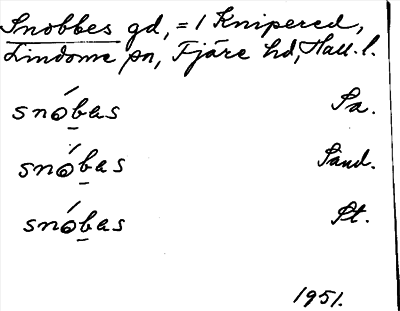 Snobbes gd, = 1 Knipered,
Lindome sn, Fjäre hd, Hall. l.
snó̱bas Sa.
snó̱bas Sand.
snó̱bas St.
1951.